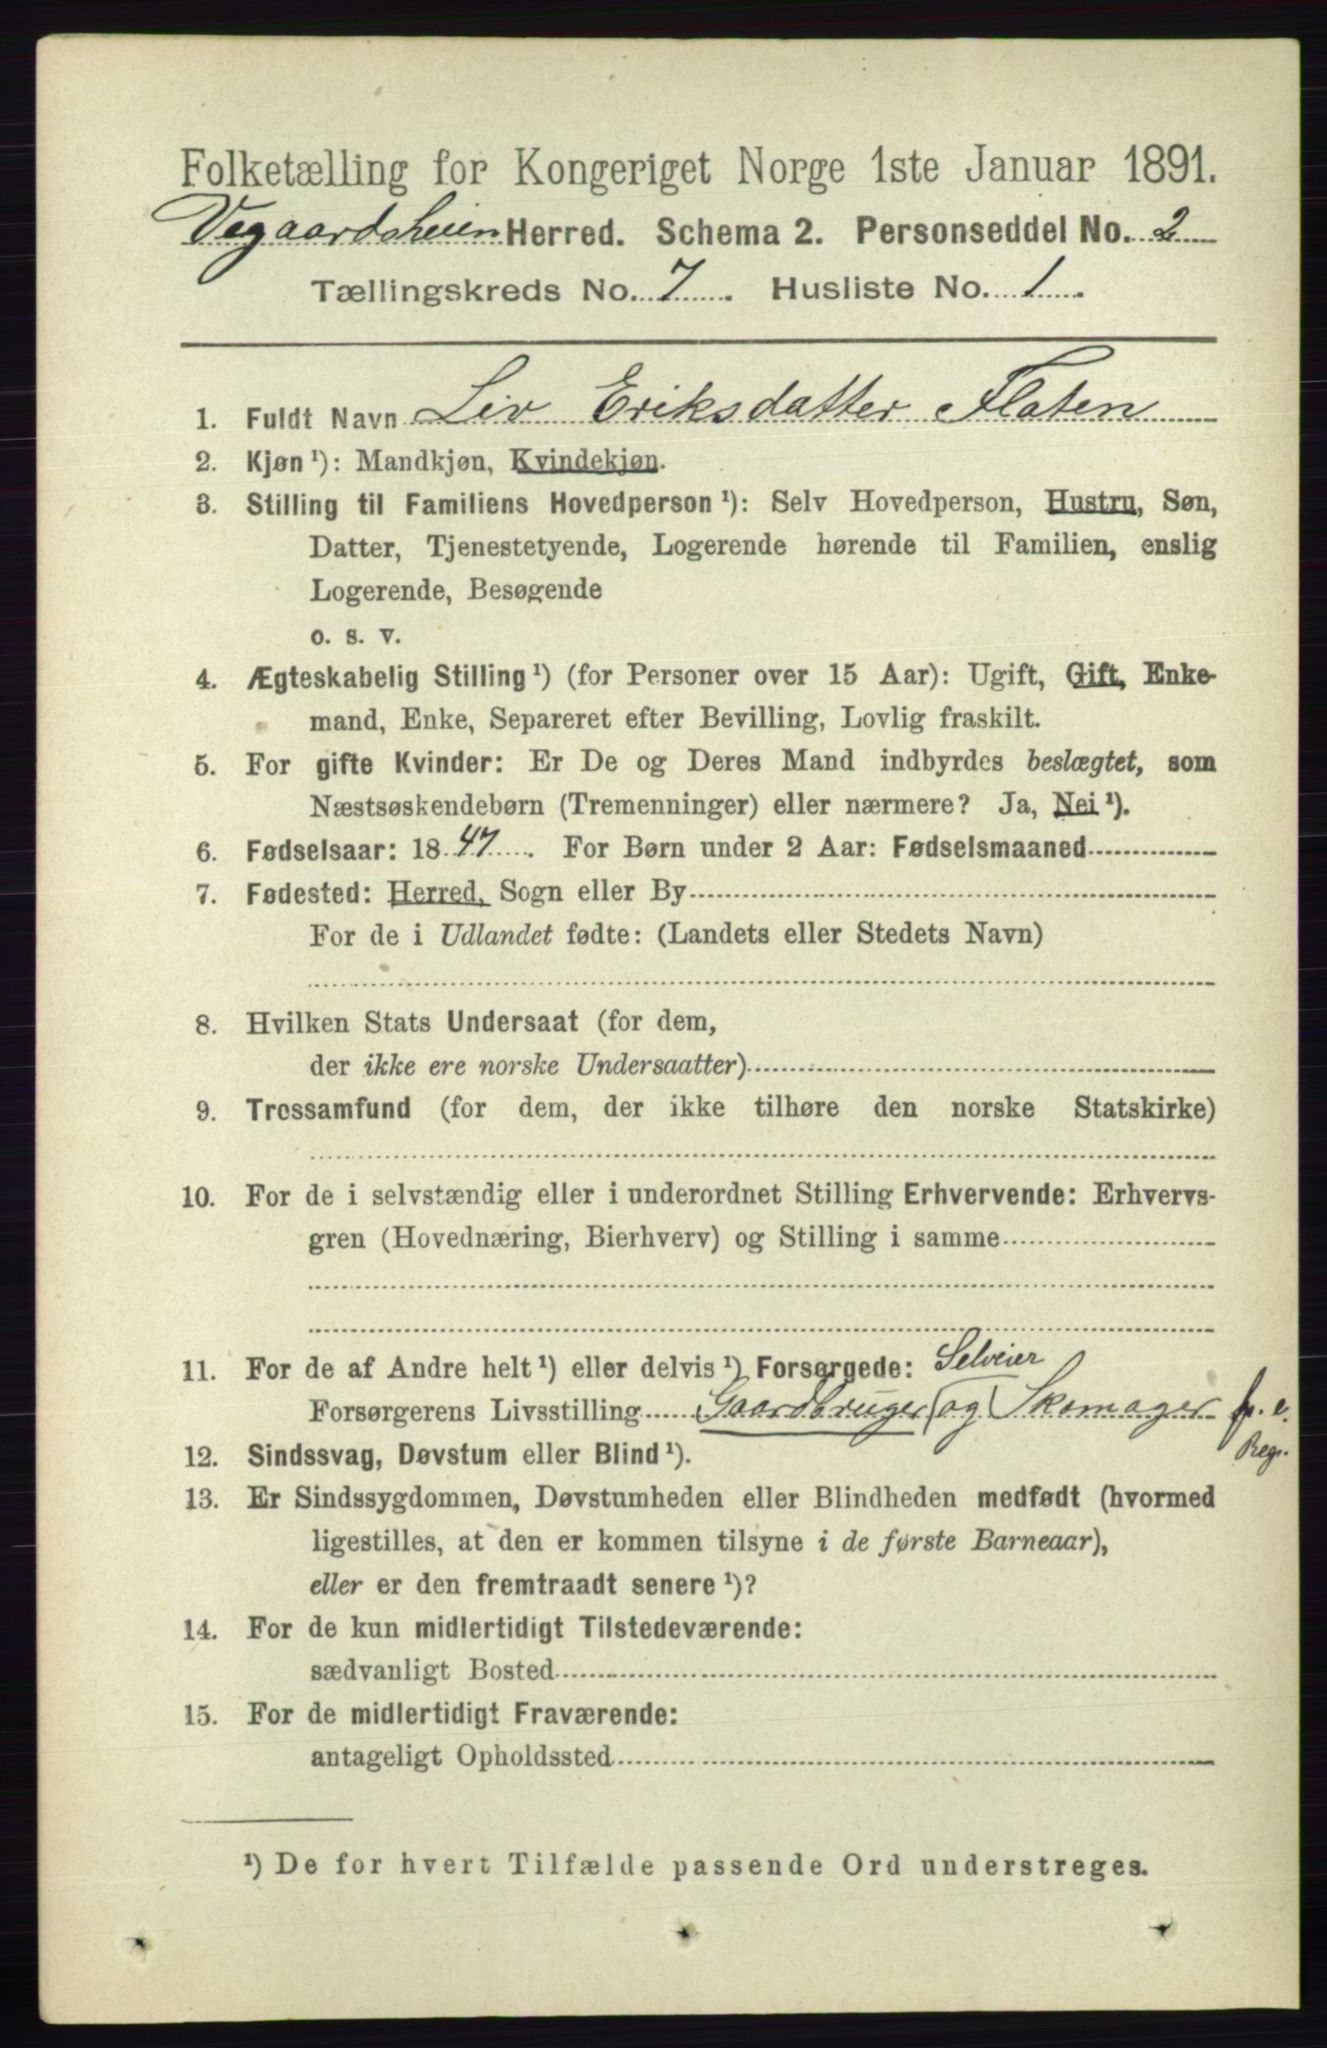 Folketælling for Kongeriget Norge 1ste Januar 1891.
Vegaardsheien Herred. Schema 2. Personseddel No. 2
Tællingskreds No. 7. Husliste No. 1.
1. Fuldt Navn Liv Eriksdatter Flaten
2. Kjøn¹): Mandkjøn, Kvindekjøn.
3. Stilling til Familiens Hovedperson¹): Selv Hovedperson, Hustru, Søn,
Datter, Tjenestetyende, Logerende hørende til Familien, enslig
Logerende, Besøgende
o. s. v.
4. Ægteskabelig Stilling¹) (for Personer over 15 Aar): Ugift, Gift, Enke-
mand, Enke, Separeret efter Bevilling, Lovlig fraskilt.
5. For gifte Kvinder: Er De og Deres Mand indbyrdes beslægtet, som
Næstsøskendebørn (Tremenninger) eller nærmere? Ja, Nei¹).
6. Fødselsaar: 1847. For Børn under 2 Aar: Fødselsmaaned
7. Fødested: Herred, Sogn eller By
For de i Udlandet fødte: (Landets eller Stedets Navn)
8. Hvilken Stats Undersaat (for dem,
der ikke ere norske Undersaatter)
9. Trossamfund (for dem, der ikke tilhøre den norske Statskirke)
10. For de i selvstændig eller i underordnet Stilling Erhvervende: Erhvervs-
gren (Hovednæring, Bierhverv) og Stilling i samme
11. For de af Andre helt¹) eller delvis¹) Forsørgede: Selveier
Forsørgerens Livsstilling Gaardbruger (og) Skomager fr. e.
Reg.
12. Sindssvag, Døvstum eller Blind¹).
13. Er Sindssygdommen, Døvstumheden eller Blindheden medfødt (hvormed
ligestilles, at den er kommen tilsyne i de første Barneaar),
eller er den fremtraadt senere¹)?
14. For de kun midlertidigt Tilstedeværende:
sædvanligt Bosted
15. For de midlertidigt Fraværende:
antageligt Opholdssted
¹) De for hvert Tilfælde passende Ord understreges.